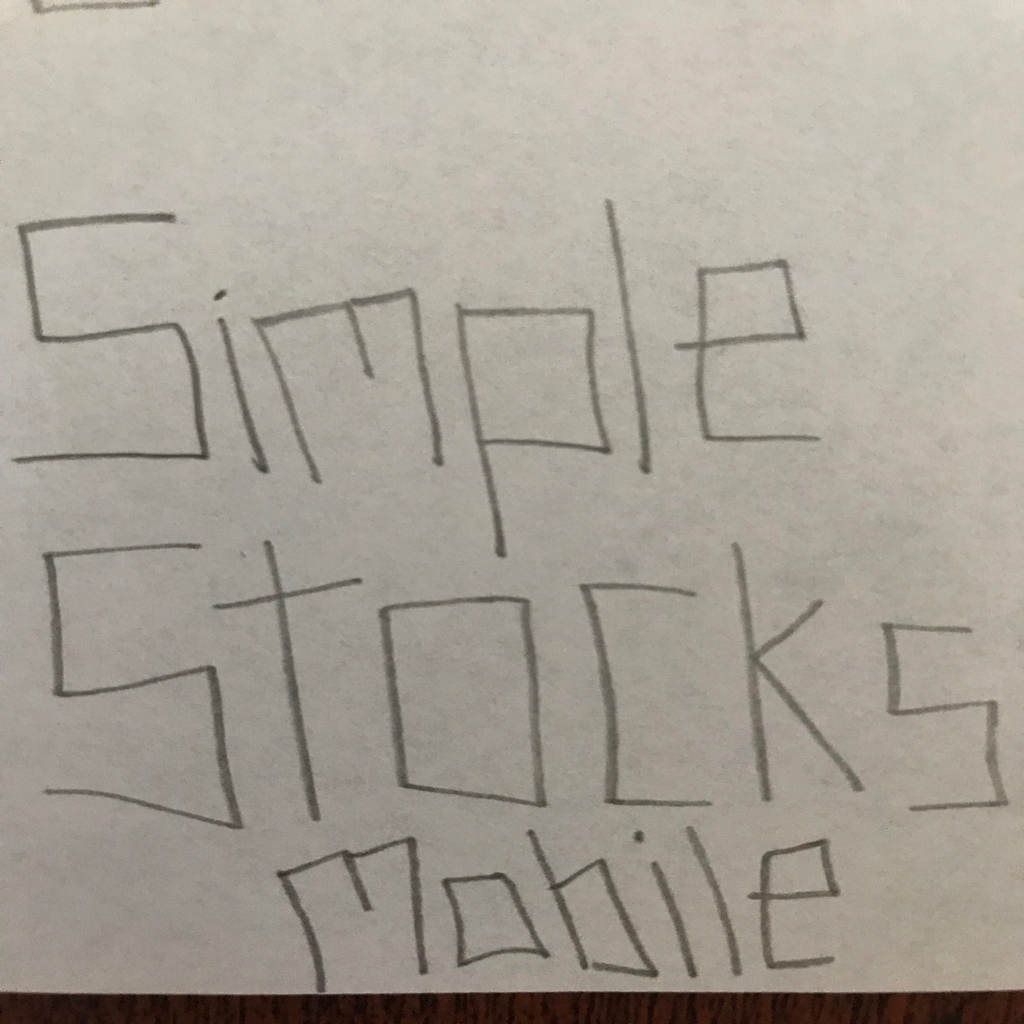 Simple
Stocks
Mobile